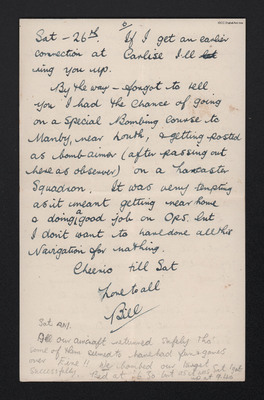 Sat - 26th If I get an earlier
connection at Carlise I'll
ring you up.
By the way - forgot to tell
you I had the chance of going
on a Special Bombing Course to
Manby, near Louth, & getting posted
as bomb aimer (after passing out
here as observer) on a Lancaster
Squadron. It was very tempting
as it meant getting near home
& doing a good job on Ops. but
I don't want to have done all this
Navigation for nothing.
Cheerio till Sat
Love to all
Bill
Sat. am.
All our aircraft returned safely tho'
some of them seemed to have had
over Essen!! We bombed our target
successfully.